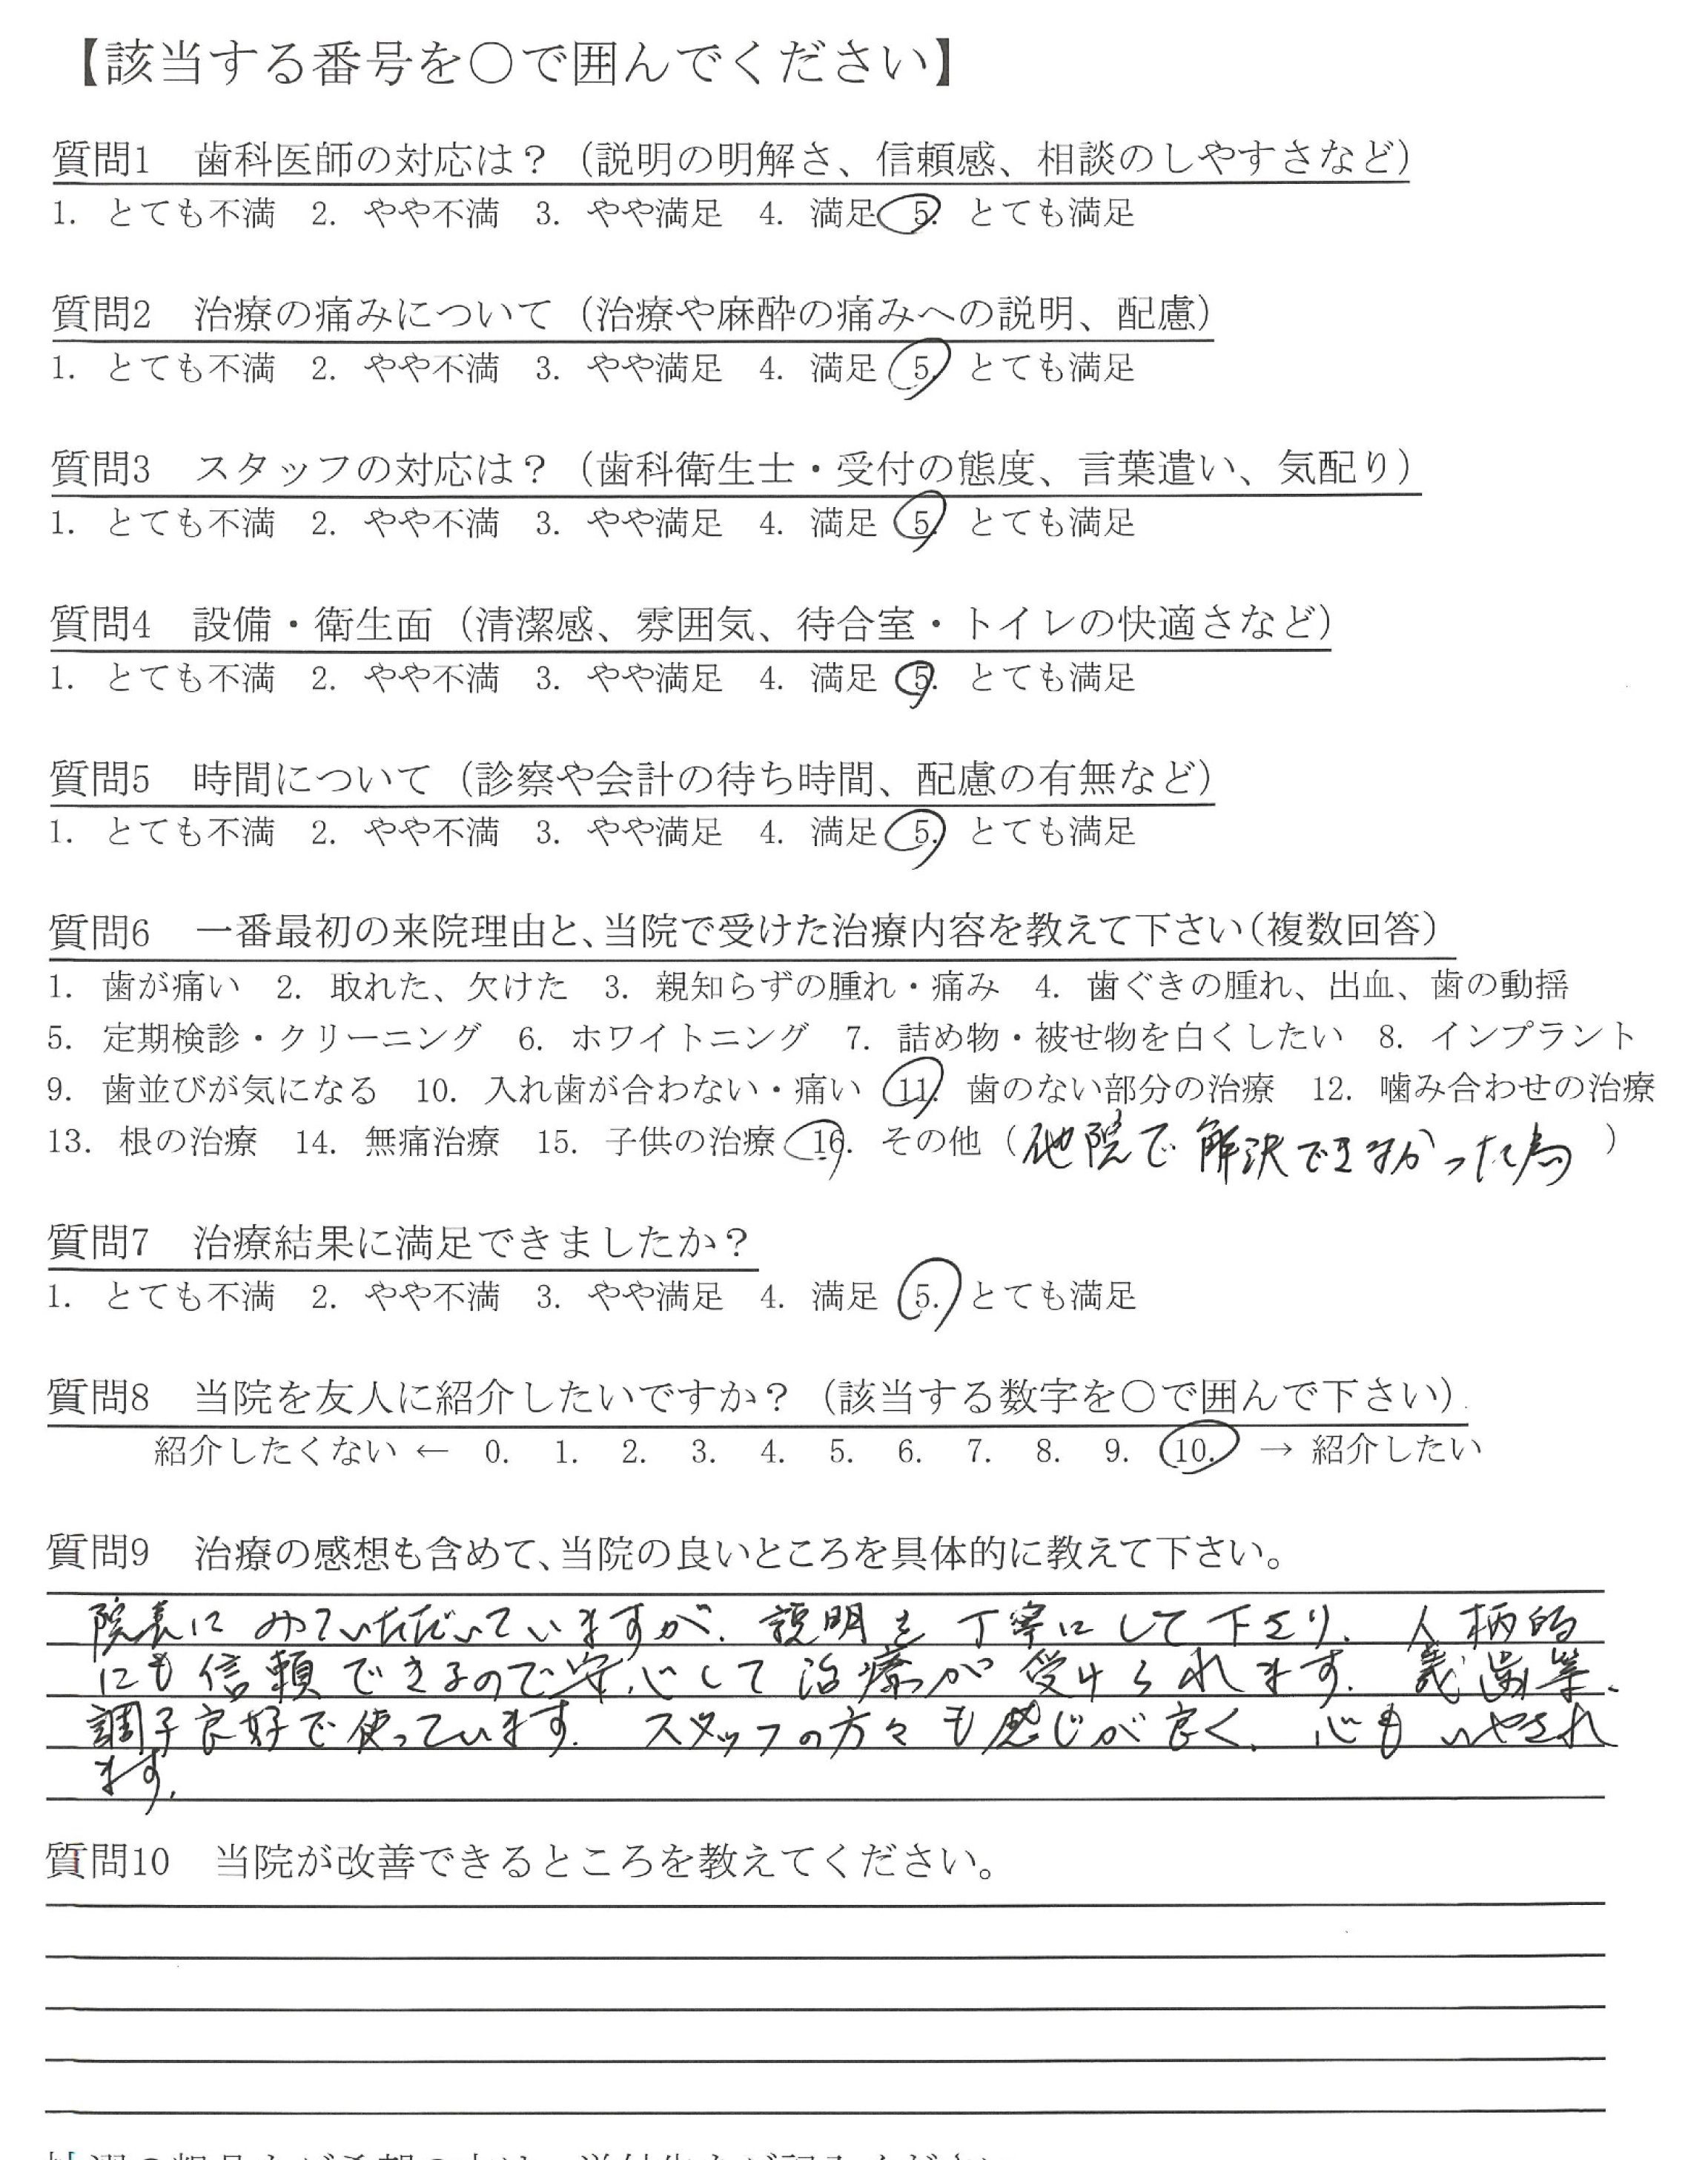 【該当する番号を○で囲んでください】
質問1　歯科医師の対応は？（説明の明解さ、信頼感、相談のしやすさなど）
1. とても不満　2. やや不満　3. やや満足　4. 満足　5. とても満足
質問2　治療の痛みについて（治療や麻酔の痛みへの説明、配慮）
1. とても不満　2. やや不満　3. やや満足　4. 満足　5. とても満足
質問3　スタッフの対応は？（歯科衛生士・受付の態度、言葉遣い、気配り）
1. とても不満　2. やや不満　3. やや満足　4. 満足　5. とても満足
質問4　設備・衛生面（清潔感、雰囲気、待合室・トイレの快適さなど）
1. とても不満　2. やや不満　3. やや満足　4. 満足　5. とても満足
質問5　時間について（診察や会計の待ち時間、配慮の有無など）
1. とても不満　2. やや不満　3. やや満足　4. 満足　5. とても満足
質問6　一番最初の来院理由と、当院で受けた治療内容を教えて下さい（複数回答）
1. 歯が痛い　2. 取れた、欠けた　3. 親知らずの腫れ・痛み　4. 歯ぐきの腫れ、出血、歯の動揺
5. 定期検診・クリーニング　6. ホワイトニング　7. 詰め物・被せ物を白くしたい　8. インプラント
9. 歯並びが気になる　10. 入れ歯が合わない・痛い　11. 歯のない部分の治療　12. 噛み合わせの治療
13. 根の治療　14. 無痛治療　15. 子供の治療　16. その他（他院で解決できなかった為）
質問7　治療結果に満足できましたか？
1. とても不満　2. やや不満　3. やや満足　4. 満足　5. とても満足
質問8　当院を友人に紹介したいですか？（該当する数字を○で囲んで下さい）
紹介したくない ← 0. 1. 2. 3. 4. 5. 6. 7. 8. 9. 10. → 紹介したい
質問9　治療の感想も含めて、当院の良いところを具体的に教えて下さい。
院長にみていただいていますが、説明も丁寧にして下さり、人柄的
にも信頼できるので安心して治療が受けられます。義歯等、
調子良好で使っています。スタッフの方々も感じが良く、心もいやされ
ます。
質問10　当院が改善できるところを教えてください。